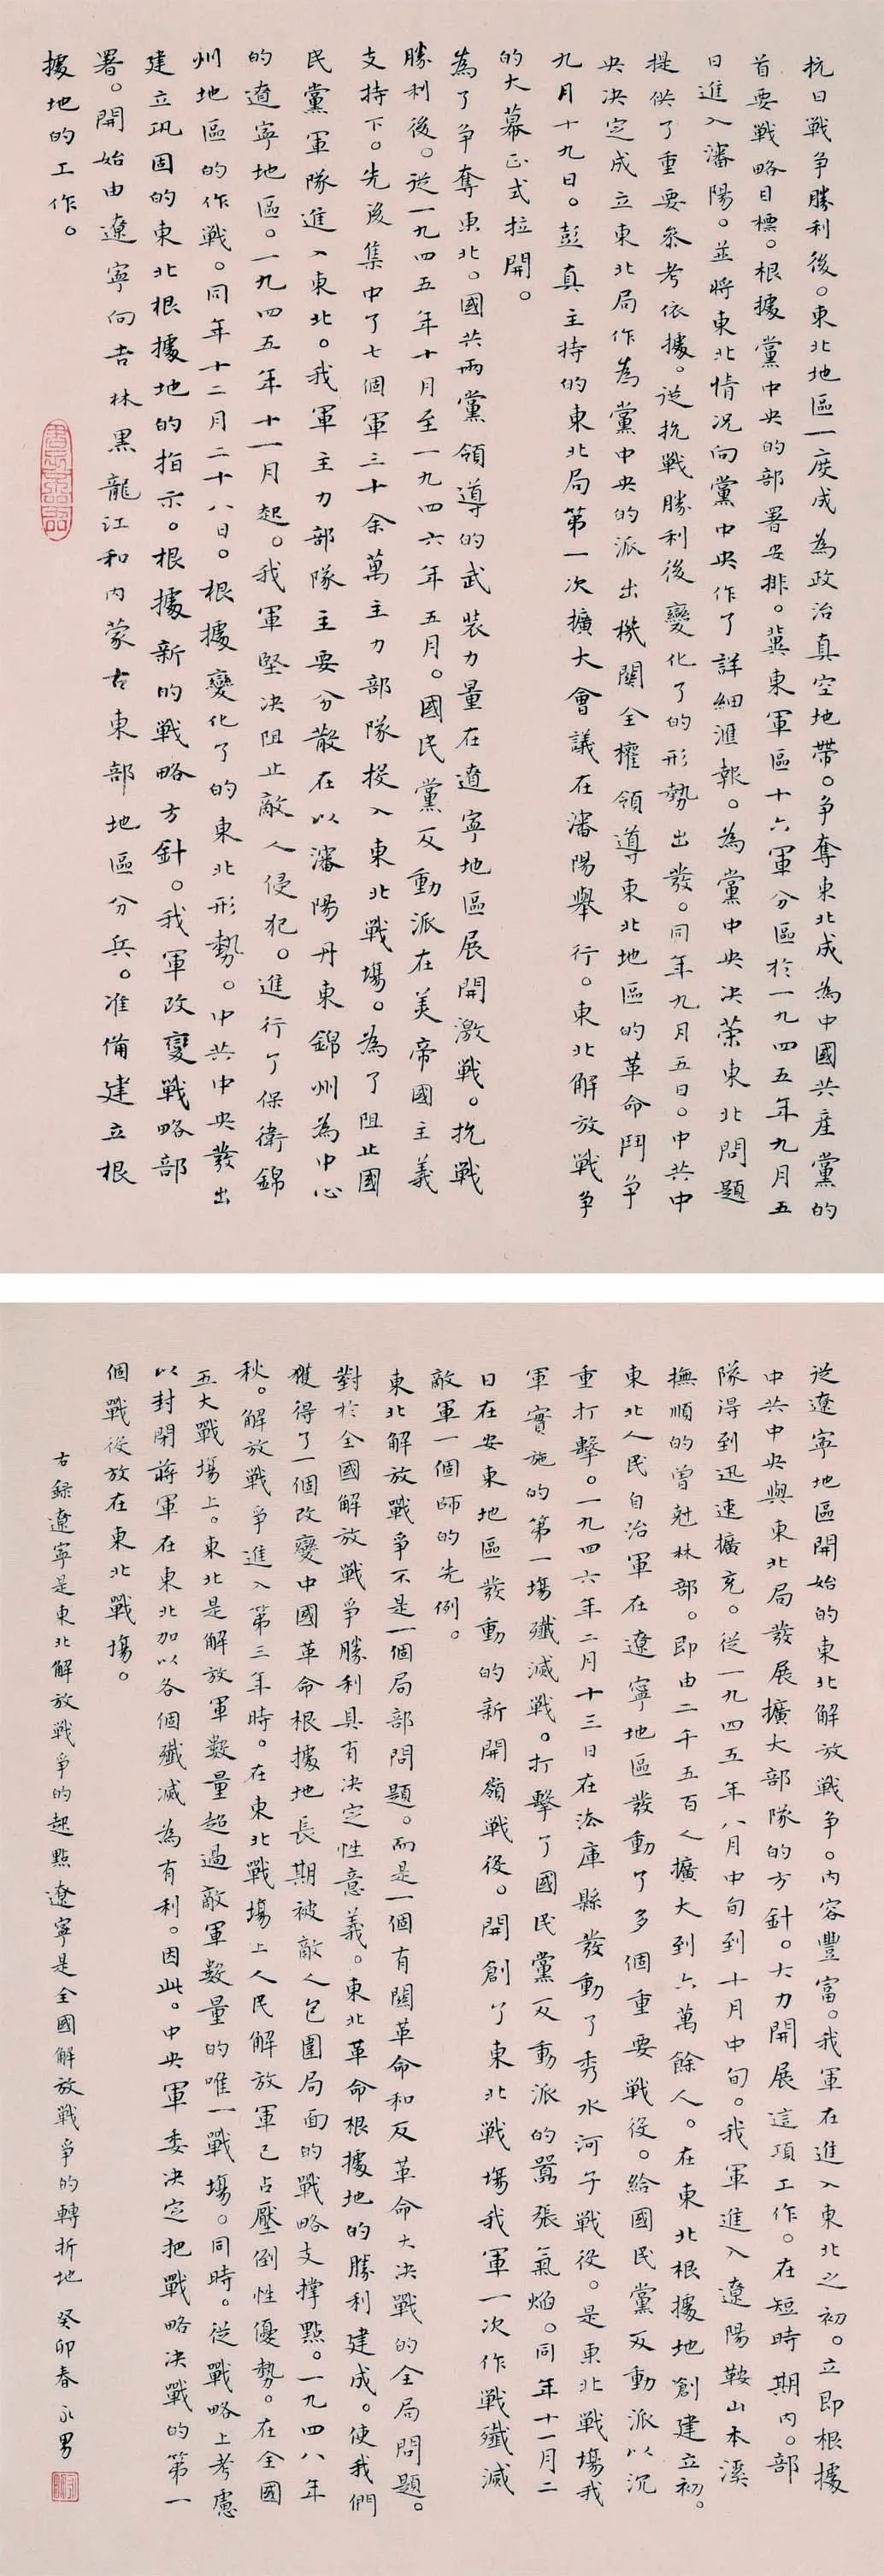 抗日戰爭勝利後。東北地區一度成為政治真空地帶。爭奪東北成為中國共產黨的
首要戰略目標。根據黨中央的部署安排。冀東軍區十六軍分區於一九四五年九月五
日進入瀋陽。並將東北情況向黨中央作了詳細滙報。為黨中央決策東北問題
提供了重要參考依據。從抗戰勝利後變化了的形勢出發。同年九月五日。中共中
央決定成立東北局作為黨中央的派出機關全權領導東北地區的革命鬥爭
九月十九日。彭真主持的東北局第一次擴大會議在瀋陽舉行。東北解放戰爭
的大幕正式拉開。
為了爭奪東北。國共兩黨領導的武裝力量在遼寧地區展開激戰。抗戰
勝利後。從一九四五年十月至一九四六年五月。國民黨反動派在美帝國主義
支持下。先後集中了七個軍三十余萬主力部隊投入東北戰場。為了阻止國
民黨軍隊進入東北。我軍主力部隊主要分散在以瀋陽丹東錦州為中心
的遼寧地區。一九四五年十一月起。我軍堅決阻止敵人侵犯。進行了保衛錦
州地區的作戰。同年十二月二十八日。根據變化了的東北形勢。中共中央發出
建立巩固的東北根據地的指示。根據新的戰略方針。我軍改變戰略部
署。開始由遼寧向吉林黑龍江和内蒙古東部地區分兵。准備建立根
據地的工作。
從遼寧地區開始的東北解放戰爭。内容豐富。我軍在進入東北之初。立即根據
中共中央與東北局發展擴大部隊的方針。大力開展這項工作。在短時期内。部
隊得到迅速擴充。從一九四五年八月中旬到十月中旬。我軍進入遼陽鞍山本溪
撫順的曾尅林部。即由二千五百人擴大到六萬餘人。在東北根據地創建立初。
東北人民自治軍在遼寧地區發動了多個重要戰役。給國民黨反動派以沉
重打擊。一九四六年二月十三日在法庫縣發動了秀水河子戰役。是東北戰場我
軍實施的第一場殲滅戰。打擊了國民黨反動派的囂張氣焰。同年十一月二
日在安東地區發動的新開嶺戰役。開創了東北戰場我軍一次作戰殲滅
敵軍一個師的先例。
東北解放戰爭不是一個局部問題。而是一個有關革命和反革命大決戰的全局問題。
對於全國解放戰爭勝利具有決定性意義。東北革命根據地的勝利建成。使我們
獲得了一個改變中國革命根據地長期被敵人包圍局面的戰略支撐點。一九四八年
秋。解放戰爭進入第三年時。在東北戰場上人民解放軍已占壓倒性優勢。在全國
五大戰場上。東北是解放軍數量超過敵軍數量的唯一戰場。同時。從戰略上考慮
以封閉蔣軍在東北加以各個殲滅為有利。因此。中央軍委決定把戰略決戰的第一
個戰役放在東北戰場。
右録遼寧是東北解放戰爭的起點遼寧是全國解放戰爭的轉折地 癸卯春 永男